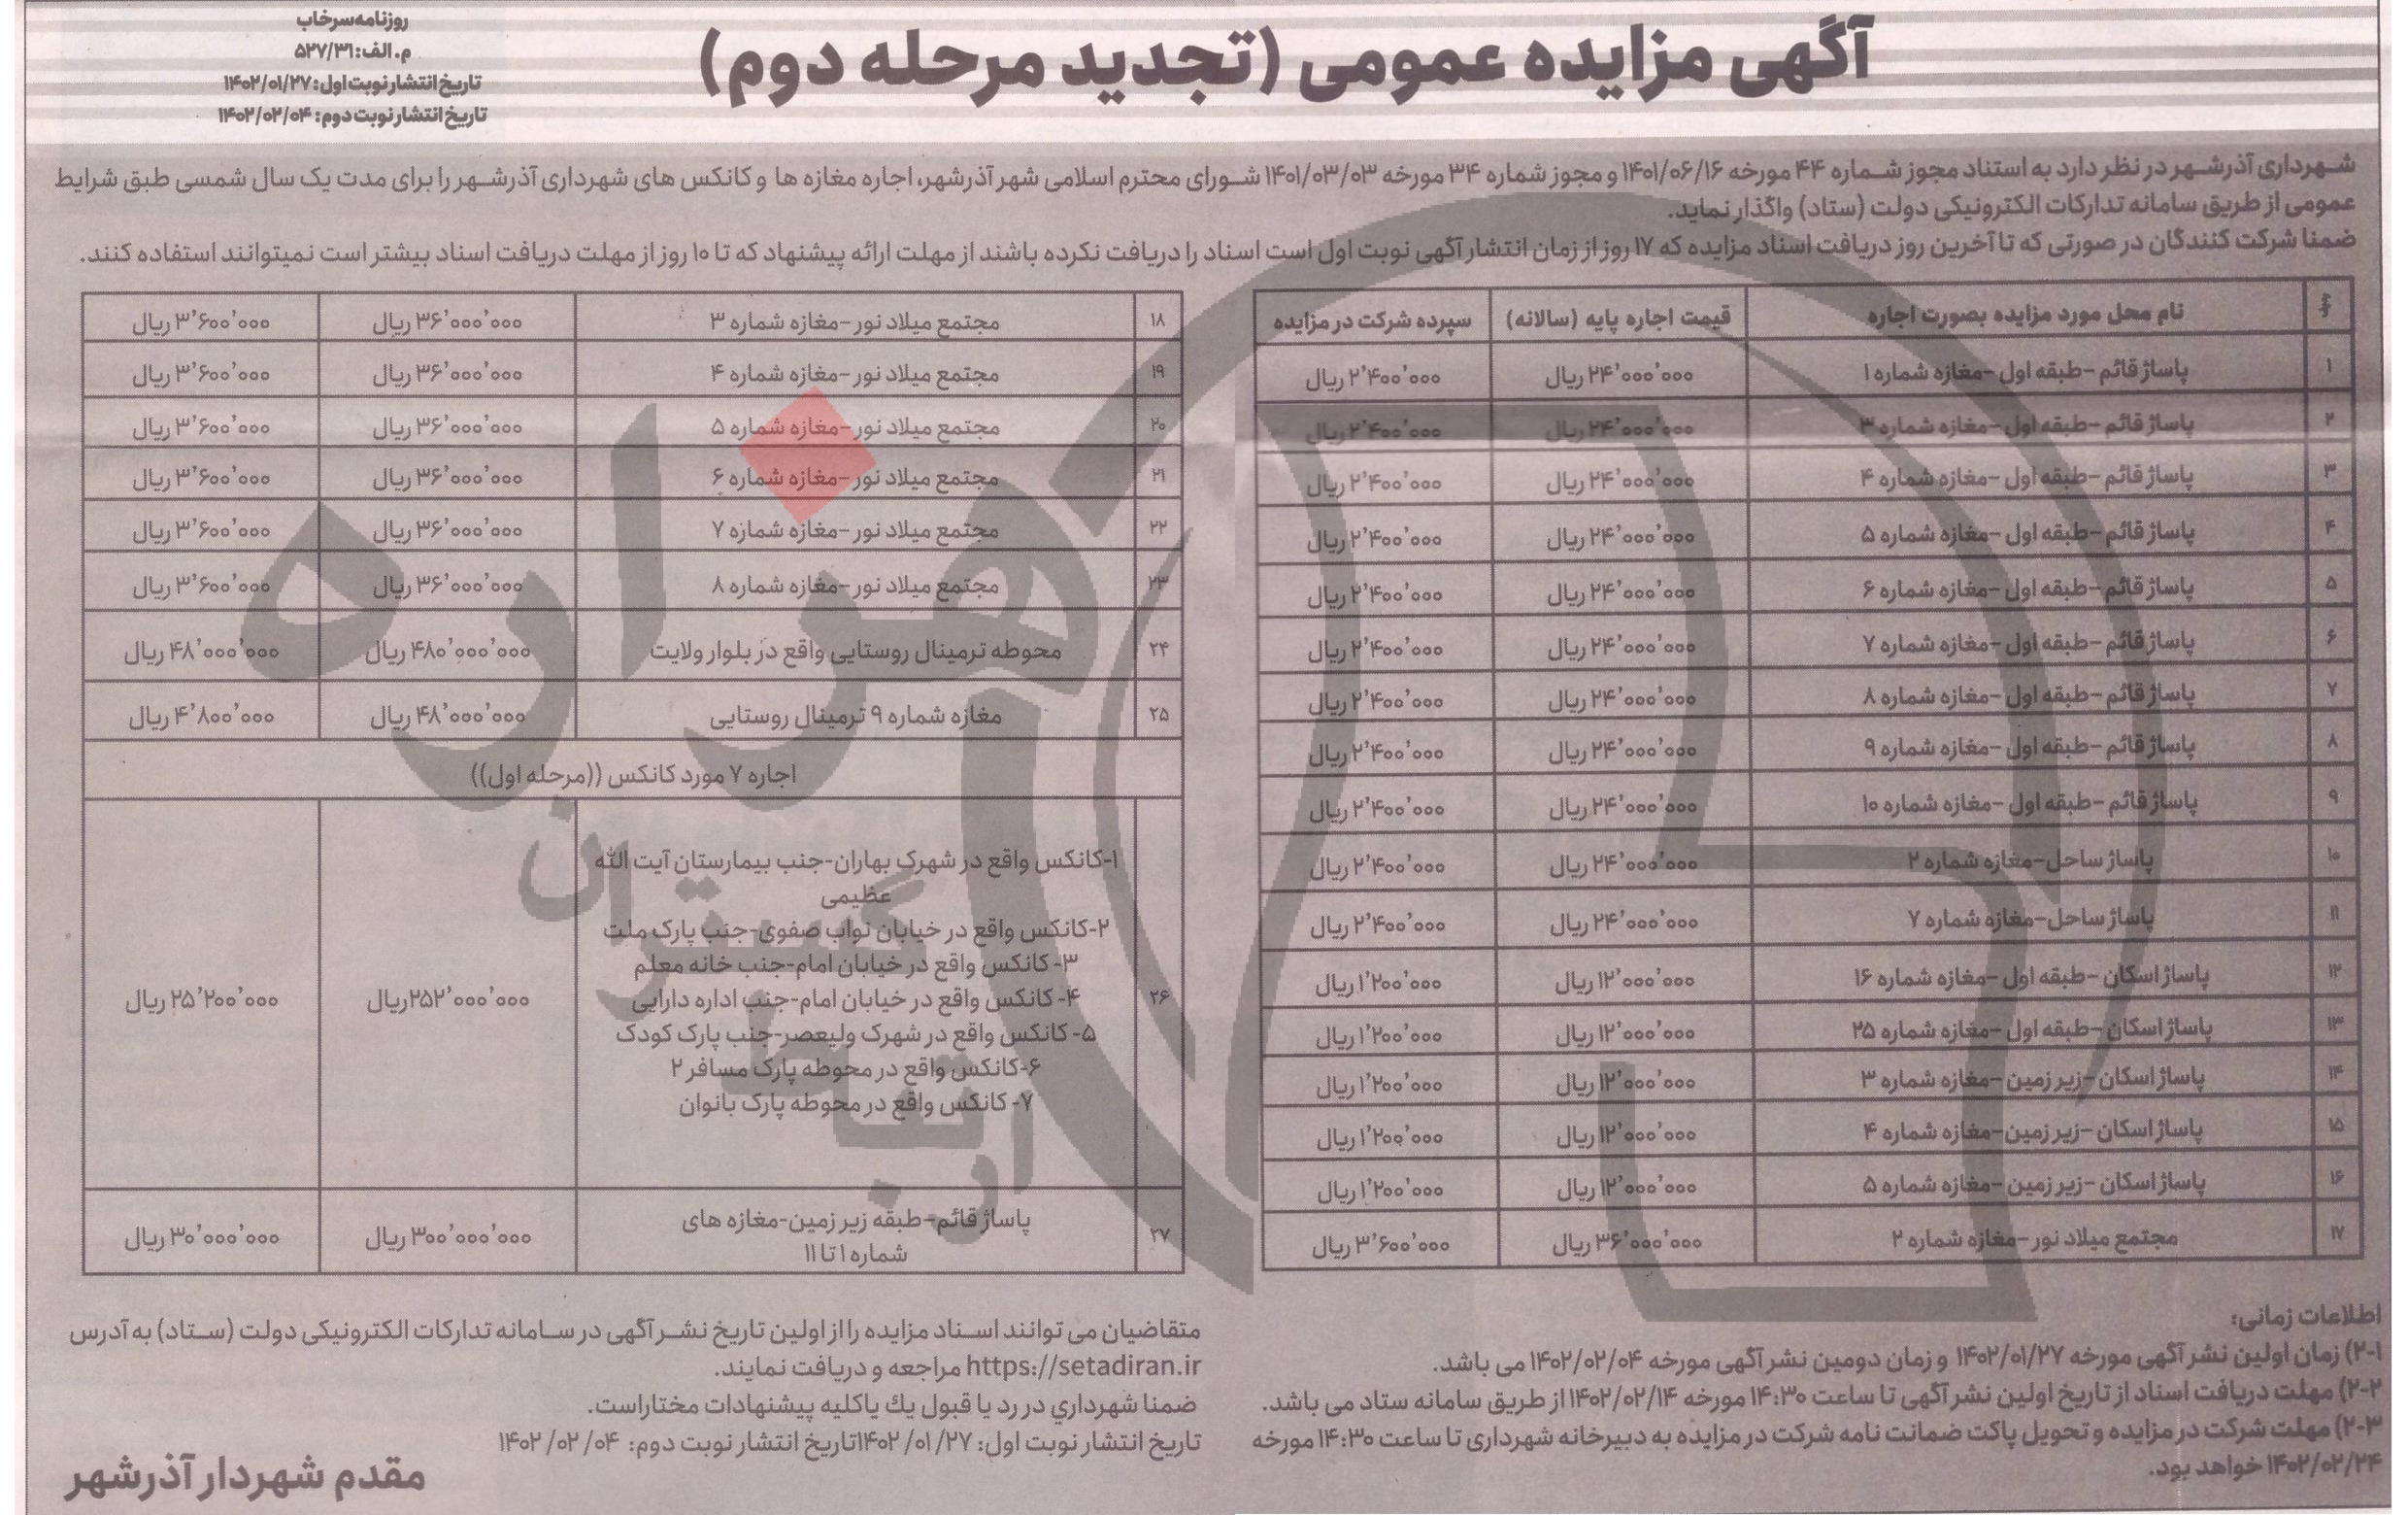 آگهی مزایده عمومی (تجدید مرحله دوم)
روزنامه سرخاب
م.الف: ۵۲۷/۳۱
تاریخ انتشار نوبت اول: ۱۴۰۲/۰۱/۲۷
تاریخ انتشار نوبت دوم: ۱۴۰۲/۰۲/۰۴
شهرداری آذرشهر در نظر دارد به استناد مجوز شماره ۴۴ مورخه ۱۴۰۱/۰۶/۱۶ و مجوز شماره ۳۴ مورخه ۱۴۰۱/۰۳/۰۳ شورای محترم اسلامی شهر آذرشهر، اجاره مغازه ها و کانکس های شهرداری آذرشهر را برای مدت یک سال شمسی طبق شرایط
عمومی از طریق سامانه تدارکات الکترونیکی دولت (ستاد) واگذار نماید.
ضمنا شرکت کنندگان در صورتی که تا آخرین روز دریافت اسناد مزایده که ۱۷ روز از زمان انتشار آگهی نوبت اول است اسناد را دریافت نکرده باشند از مهلت ارائه پیشنهاد که تا ۱۰ روز از مهلت دریافت اسناد بیشتر است نمیتوانند استفاده کنند.
نام محل مورد مزایده بصورت اجاره قیمت اجاره پایه (سالانه) سپرده شرکت در مزایده
۱ پاساژ قائم -طبقه اول -مغازه شماره ۱ ۲۴٬۰۰۰٬۰۰۰ ریال ۲٬۴۰۰٬۰۰۰ ریال
۲ پاساژ قائم -طبقه اول -مغازه شماره ۳ ۲۴٬۰۰۰٬۰۰۰ ریال ۲٬۴۰۰٬۰۰۰ ریال
۳ پاساژ قائم -طبقه اول -مغازه شماره ۴ ۲۴٬۰۰۰٬۰۰۰ ریال ۲٬۴۰۰٬۰۰۰ ریال
۴ پاساژ قائم -طبقه اول -مغازه شماره ۵ ۲۴٬۰۰۰٬۰۰۰ ریال ۲٬۴۰۰٬۰۰۰ ریال
۵ پاساژ قائم -طبقه اول -مغازه شماره ۶ ۲۴٬۰۰۰٬۰۰۰ ریال ۲٬۴۰۰٬۰۰۰ ریال
۶ پاساژ قائم -طبقه اول -مغازه شماره ۷ ۲۴٬۰۰۰٬۰۰۰ ریال ۲٬۴۰۰٬۰۰۰ ریال
۷ پاساژ قائم -طبقه اول -مغازه شماره ۸ ۲۴٬۰۰۰٬۰۰۰ ریال ۲٬۴۰۰٬۰۰۰ ریال
۸ پاساژ قائم -طبقه اول -مغازه شماره ۹ ۲۴٬۰۰۰٬۰۰۰ ریال ۲٬۴۰۰٬۰۰۰ ریال
۹ پاساژ قائم -طبقه اول -مغازه شماره ۱۰ ۲۴٬۰۰۰٬۰۰۰ ریال ۲٬۴۰۰٬۰۰۰ ریال
۱۰ پاساژ ساحل-مغازه شماره ۲ ۲۴٬۰۰۰٬۰۰۰ ریال ۲٬۴۰۰٬۰۰۰ ریال
۱۱ پاساژ ساحل-مغازه شماره ۷ ۲۴٬۰۰۰٬۰۰۰ ریال ۲٬۴۰۰٬۰۰۰ ریال
۱۲ پاساژ اسکان -طبقه اول -مغازه شماره ۱۶ ۱۲٬۰۰۰٬۰۰۰ ریال ۱٬۲۰۰٬۰۰۰ ریال
۱۳ پاساژ اسکان -طبقه اول -مغازه شماره ۲۵ ۱۲٬۰۰۰٬۰۰۰ ریال ۱٬۲۰۰٬۰۰۰ ریال
۱۴ پاساژ اسکان -زیر زمین -مغازه شماره ۳ ۱۲٬۰۰۰٬۰۰۰ ریال ۱٬۲۰۰٬۰۰۰ ریال
۱۵ پاساژ اسکان -زیر زمین-مغازه شماره ۴ ۱۲٬۰۰۰٬۰۰۰ ریال ۱٬۲۰۰٬۰۰۰ ریال
۱۶ پاساژ اسکان -زیر زمین -مغازه شماره ۵ ۱۲٬۰۰۰٬۰۰۰ ریال ۱٬۲۰۰٬۰۰۰ ریال
۱۷ مجتمع میلاد نور -مغازه شماره ۲ ۳۶٬۰۰۰٬۰۰۰ ریال ۳٬۶۰۰٬۰۰۰ ریال
۱۸ مجتمع میلاد نور -مغازه شماره ۳ ۳۶٬۰۰۰٬۰۰۰ ریال ۳٬۶۰۰٬۰۰۰ ریال
۱۹ مجتمع میلاد نور -مغازه شماره ۴ ۳۶٬۰۰۰٬۰۰۰ ریال ۳٬۶۰۰٬۰۰۰ ریال
۲۰ مجتمع میلاد نور -مغازه شماره ۵ ۳۶٬۰۰۰٬۰۰۰ ریال ۳٬۶۰۰٬۰۰۰ ریال
۲۱ مجتمع میلاد نور -مغازه شماره ۶ ۳۶٬۰۰۰٬۰۰۰ ریال ۳٬۶۰۰٬۰۰۰ ریال
۲۲ مجتمع میلاد نور -مغازه شماره ۷ ۳۶٬۰۰۰٬۰۰۰ ریال ۳٬۶۰۰٬۰۰۰ ریال
۲۳ مجتمع میلاد نور -مغازه شماره ۸ ۳۶٬۰۰۰٬۰۰۰ ریال ۳٬۶۰۰٬۰۰۰ ریال
۲۴ محوطه ترمینال روستایی واقع در بلوار ولایت ۴۸۰٬۰۰۰٬۰۰۰ ریال ۴۸٬۰۰۰٬۰۰۰ ریال
۲۵ مغازه شماره ۹ ترمینال روستایی ۴۸٬۰۰۰٬۰۰۰ ریال ۴٬۸۰۰٬۰۰۰ ریال
اجاره ۷ مورد کانکس ((مرحله اول))
۱-کانکس واقع در شهرک بهاران-جنب بیمارستان آیت الله
عظیمی
۲-کانکس واقع در خیابان نواب صفوی-جنب پارک ملت
۳- کانکس واقع در خیابان امام-جنب خانه معلم
۲۶ ۴- کانکس واقع در خیابان امام-جنب اداره دارایی ۲۵۲٬۰۰۰٬۰۰۰ ریال ۲۵٬۲۰۰٬۰۰۰ ریال
۵- کانکس واقع در شهرک ولیعصر-جنب پارک کودک
۶-کانکس واقع در محوطه پارک مسافر ۲
۷- کانکس واقع در محوطه پارک بانوان
۲۷ پاساژ قائم-طبقه زیر زمین-مغازه های ۳۰۰٬۰۰۰٬۰۰۰ ریال ۳۰٬۰۰۰٬۰۰۰ ریال
شماره ۱ تا ۱۱
اطلاعات زمانی:
۲-۱) زمان اولین نشر آگهی مورخه ۱۴۰۲/۰۱/۲۷ و زمان دومین نشر آگهی مورخه ۱۴۰۲/۰۲/۰۴ می باشد.
۲-۲) مهلت دریافت اسناد از تاریخ اولین نشر آگهی تا ساعت ۱۴:۳۰ مورخه ۱۴۰۲/۰۲/۱۴ از طریق سامانه ستاد می باشد.
۲-۳) مهلت شرکت در مزایده و تحویل پاکت ضمانت نامه شرکت در مزایده به دبیرخانه شهرداری تا ساعت ۱۴:۳۰ مورخه
۱۴۰۲/۰۲/۲۴ خواهد بود.
متقاضیان می توانند اسناد مزایده را از اولین تاریخ نشر آگهی در سامانه تدارکات الکترونیکی دولت (ستاد) به آدرس
https://setadiran.ir مراجعه و دریافت نمایند.
ضمنا شهرداري در رد یا قبول یك یاکلیه پیشنهادات مختاراست.
تاریخ انتشار نوبت اول: ۱۴۰۲/۰۱/۲۷تاریخ انتشار نوبت دوم: ۱۴۰۲/۰۲/۰۴
مقدم شهردار آذرشهر
هزاره